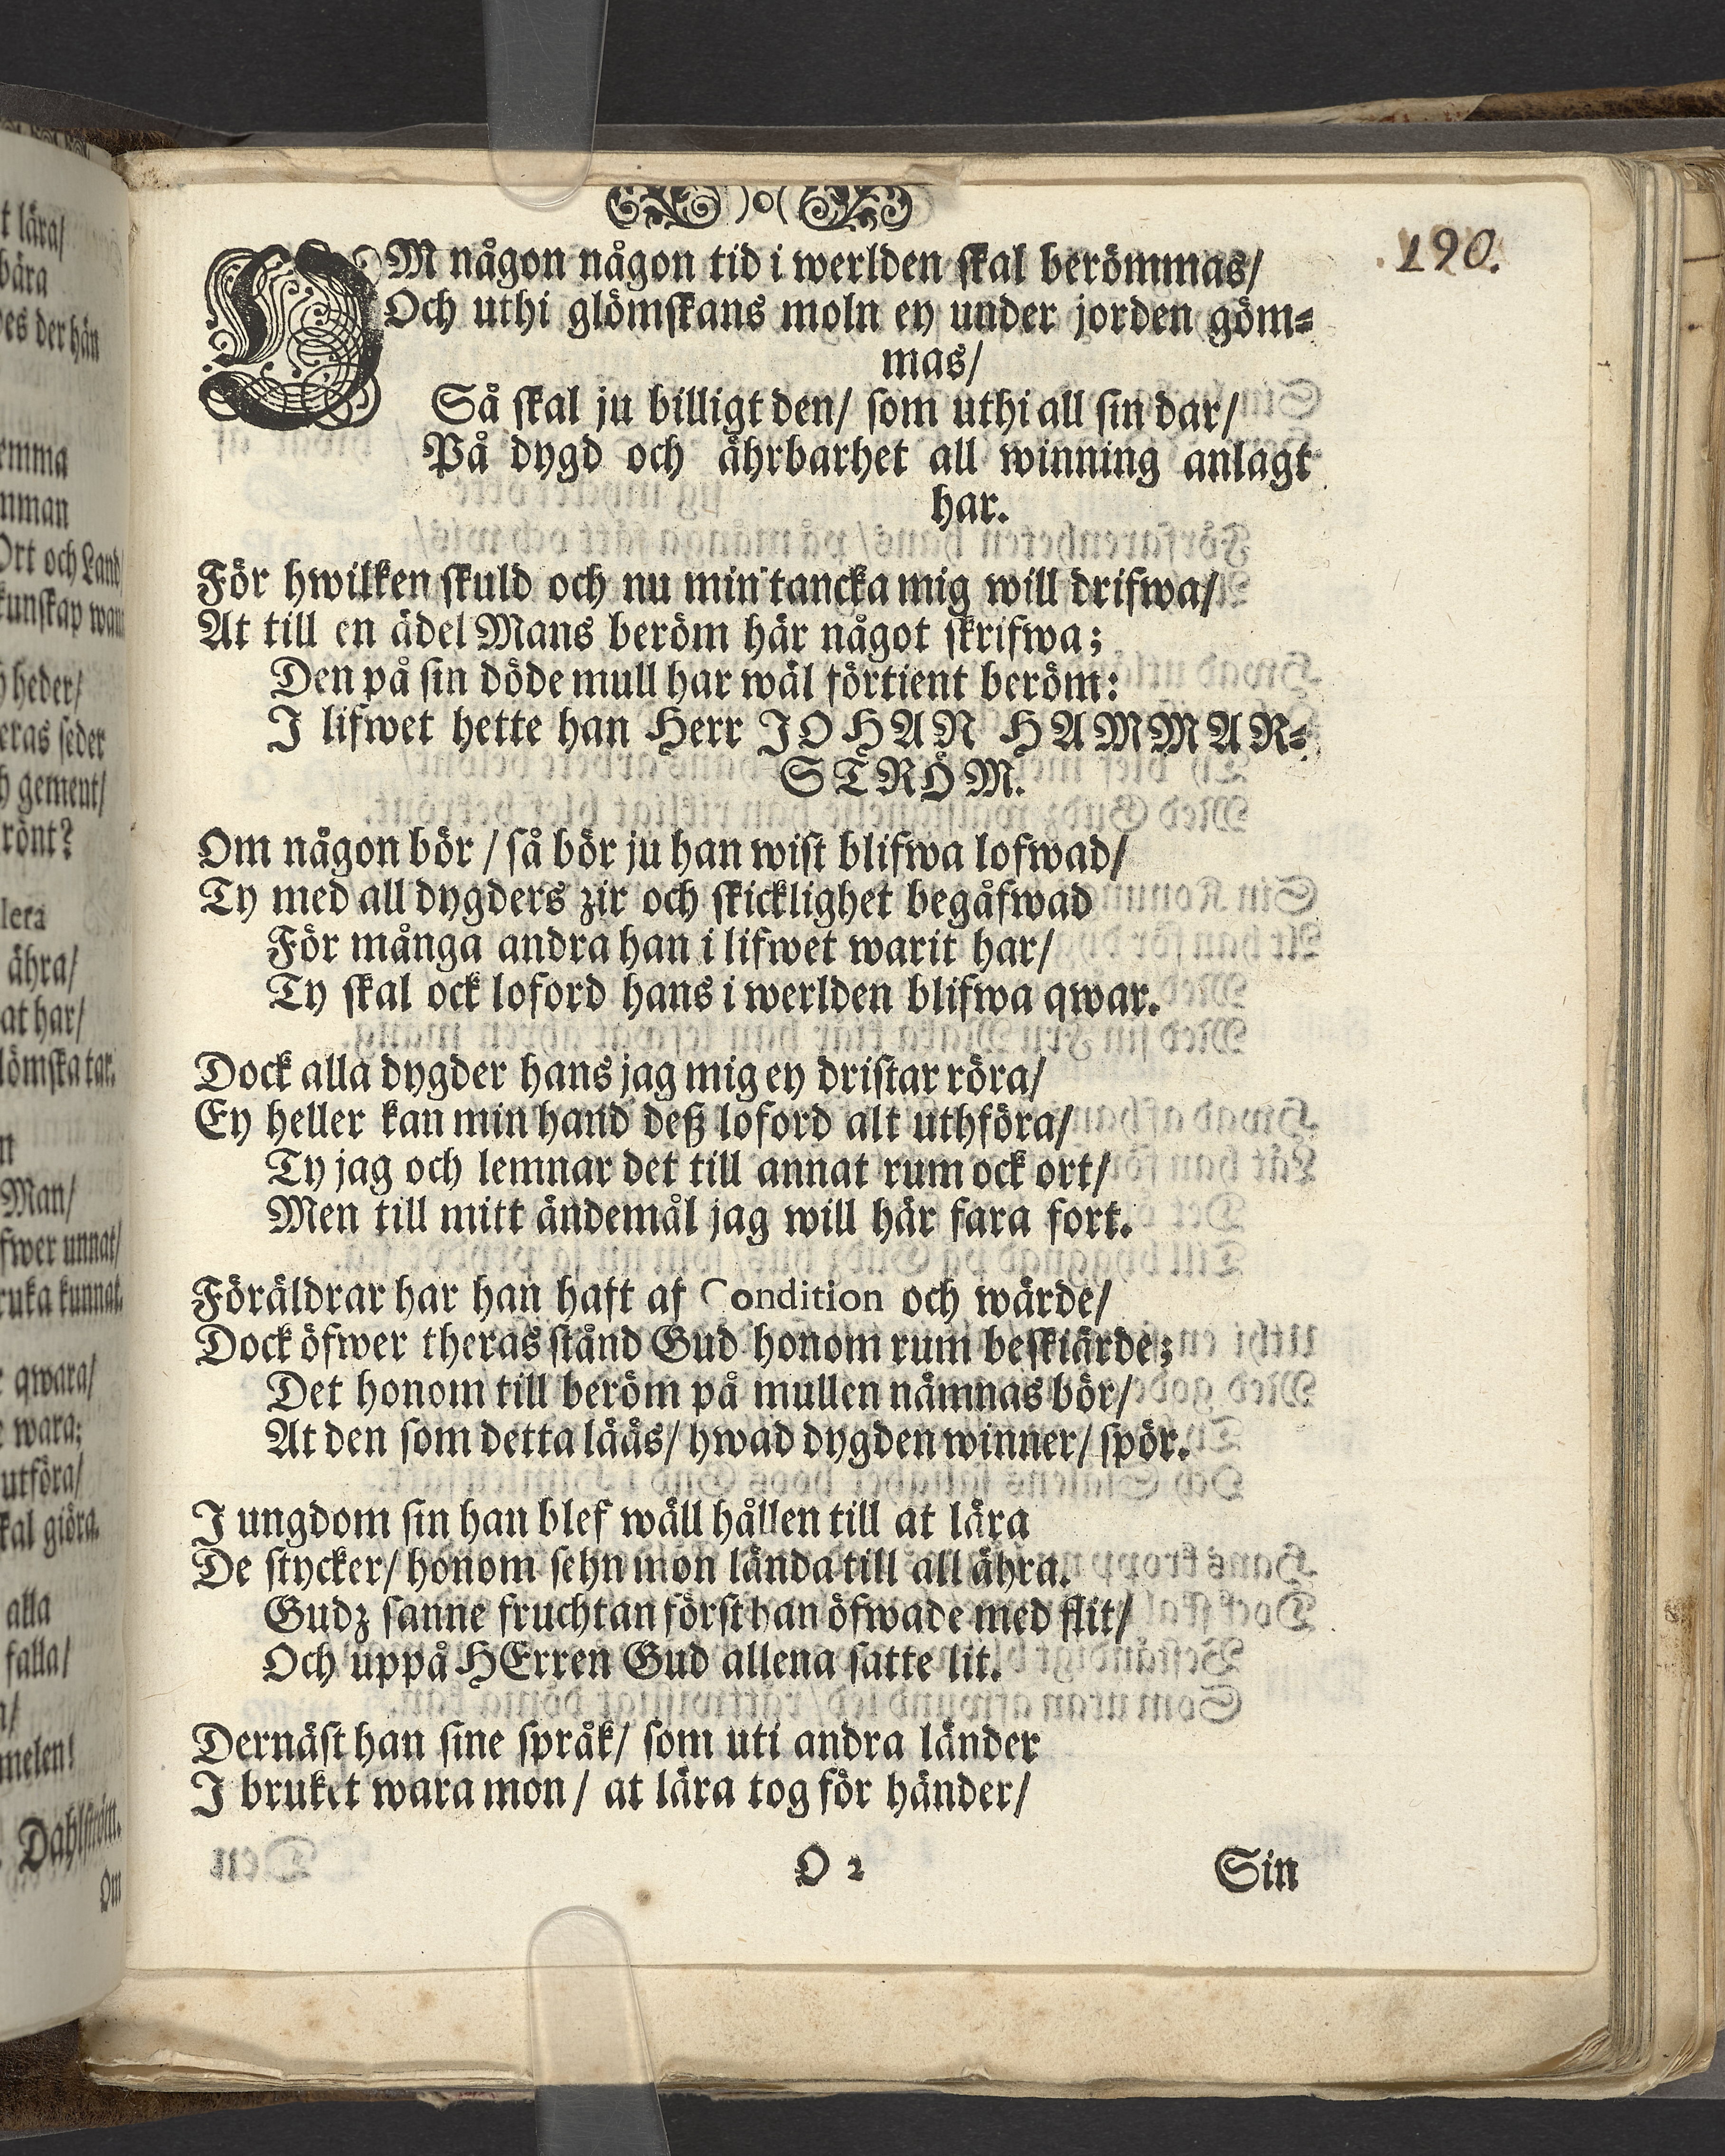 t lära/
bära
es der hån
emma
nman
Ort och Land/
kunskap wan
heder/
eras seder
gement/
rönt?
lera
ähra/
at har/
lömska tar.
nt
Man/
fwer unnat/
ruka kunnat.
qwara/
wara;
utföra/
kal giöra.
alla
falla/
melen!
Dahlström.
Om
)o(
190.
OM någon någon tid i werlden skal berömmas/
Och uthi glömskans moln ey under jorden göm=
mas/
Så skal ju billigt den/ som uthi all sin dar/
På dygd och ährbarhet all winning anlagt
har.
För hwilken skuld och nu min tancka mig will drifwa/
At till en ädel Mans beröm här något skrifwa;
Den på sin döde mull har wäl förtient beröm:
I lifwet hette han Herr JOHAN HAMMAR=
STRÖM.
Om någon bör / så bör ju han wist blifwa lofwad/
Ty med all dygders zir och skicklighet begåfwad
För många andra han i lifwet warit har/
Ty skal ock loford hans i werlden blifwa qwar.
Dock alla dygder hans jag mig ey dristar röra/
Ey heller kan min hand deß loford alt uthföra/
Ty jag och lemnar det till annat rum ock ort/
Men till mitt ändemål jag will här fara fort.
Föräldrar har han haft af Condition och wärde/
Dock öfwer theras stånd Gud honom rum beskiärde;
Det honom till beröm på mullen nämnas bör/
At den som detta lääs/ hwad dygden winner/ spör.
I ungdom sin han blef wäll hållen till at lära
De stycker/ honom sehn mon lända till all ähra.
Gudz sanne fruchtan först han öfwade med flit/
Och uppå HErren Gud allena satte lit.
Dernäst han sine språk/ som uti andra länder
I bruket wara mon / at lära tog för händer/
O 2
Sin